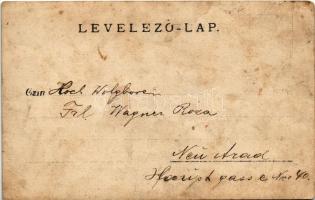 LEVELEZŐ-LAP.
Czim Hoch Wolgboren
Frl Wagner Roza
Neu Arad
Haupt gasse No 40.